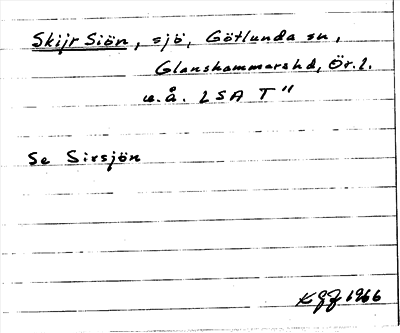 Skijr Siön, sjö, Götlunda sn,
Glanshammarshd, Ör. l.
u.å. LSA T"
Se Sirsjön
KGF 1966